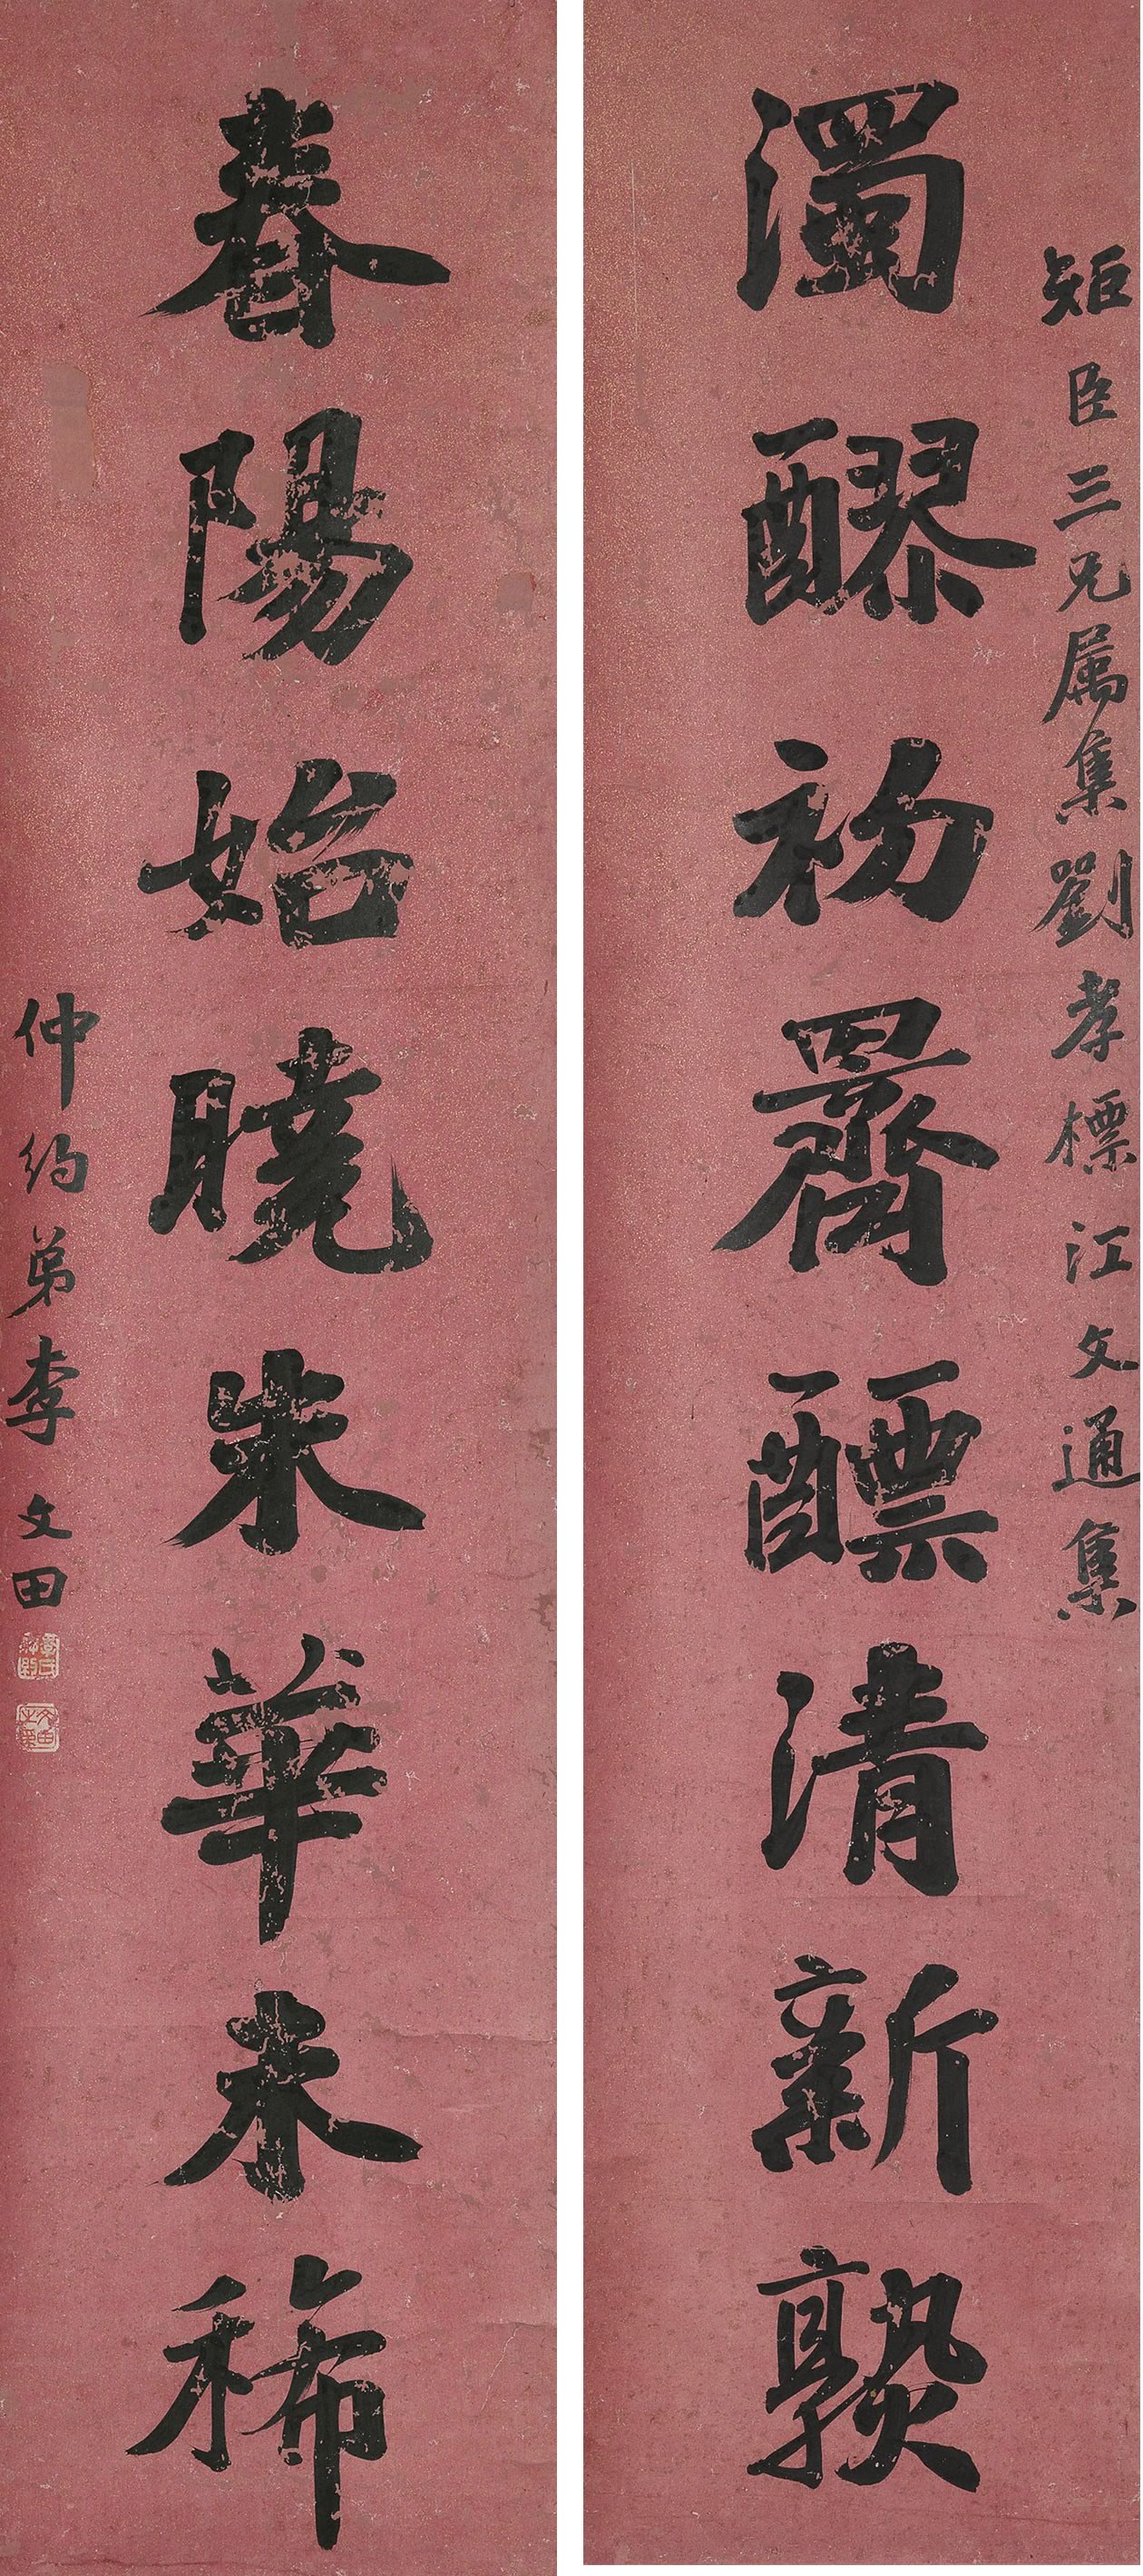 矩臣三兄属集劉孝標江文通集
濁醪初䍤醥清新熟
春陽始曉朱華未稀
仲約弟李文田
文田之印